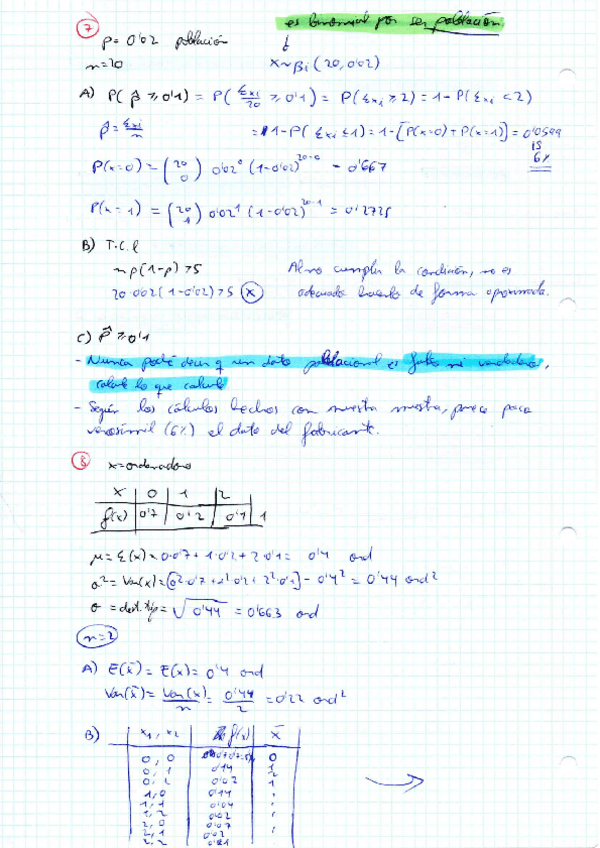 es binomial por ser población
7
p = 0'02 población
n=20
X~Bi(20, 0'02)
A) P(p̂ ≥ 0'1) = P(Σxi/20 ≥ 0'1) = P(Σxi ≥ 2) = 1 - P(Σxi < 2)
p̂ = Σxi/n
= 1 - P(Σxi ≤ 1) = 1 - [P(x=0) + P(x=1)] = 0'0599
6%
P(x=0) = (20 0) 0'02⁰ (1-0'02)²⁰⁻⁰ = 0'667
P(x=1) = (20 1) 0'02¹ (1-0'02)²⁰⁻¹ = 0'2725
B) T.C.L
np(1-p) > 5
20·0'02(1-0'02) > 5 (X)
Al no cumplir la condición, no es
adecuado hacerlo de forma aproximada.
C) p̂ ≥ 0'1
- Nunca podré decir q un dato poblacional es falso ni verdadero,
calcule lo que calcule
- Según los cálculos hechos con nuestra muestra, parece poco
verosímil (6%) el dato del fabricante.
8
x = ordenadores
x 0 1 2
f(x) 0'7 0'2 0'1 1
μ = E(x) = 0·0'7 + 1·0'2 + 2·0'1 = 0'4 ord
σ² = Var(x) = [0²·0'7 + 1²·0'2 + 2²·0'1] - 0'4² = 0'44 ord²
σ = desv.tip = √0'44 = 0'663 ord
n=2
A) E(x̄) = E(x) = 0'4 ord
Var(x̄) = Var(x)/n = 0'44/2 = 0'22 ord²
B) x₁, x₂ f(x) x̄
0, 0 0
0, 1 0'14
0, 2 1
1, 0 0'14
1, 1 0'04
1, 2 0'02
2, 0 0'07
2, 1 0'02
2, 2